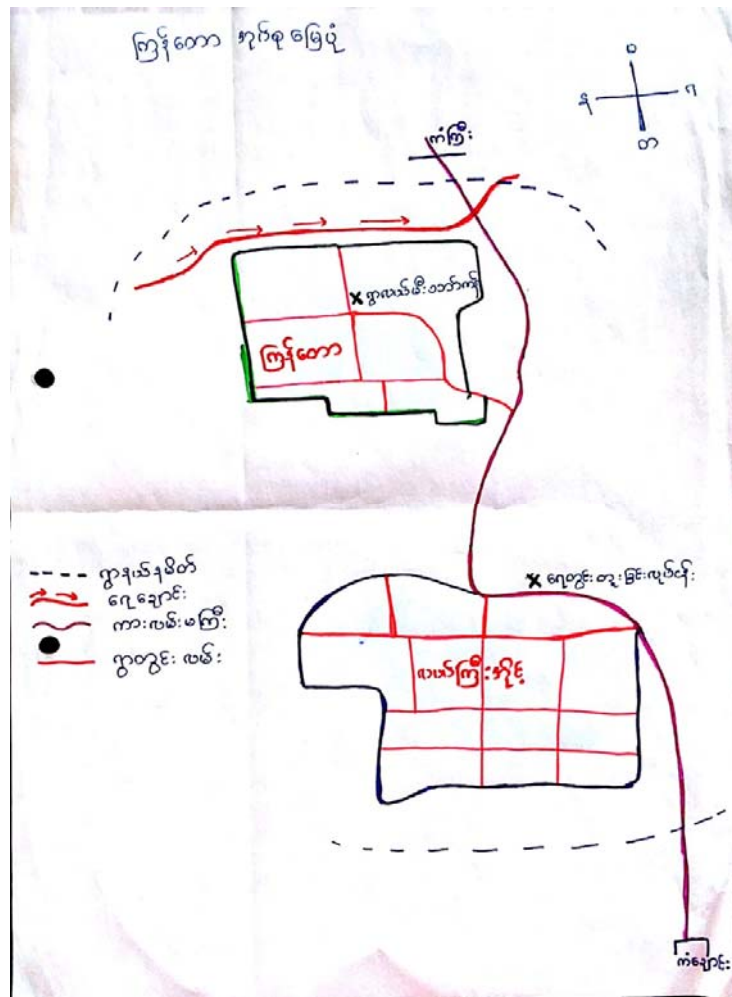 ကြန်တော အုပ်စု မြေပုံ
မ
န
ဂ
တ
ကံကြီး
ရွာလယ်မီး
ကြန်တော
ရွာနယ်နမိတ်
ရေချောင်း
ကားလမ်းမကြီး
ရွာတွင်း လမ်း
ရေတွင်းတူးခြင်းလုပ်ငန်း
ကံချောင်း